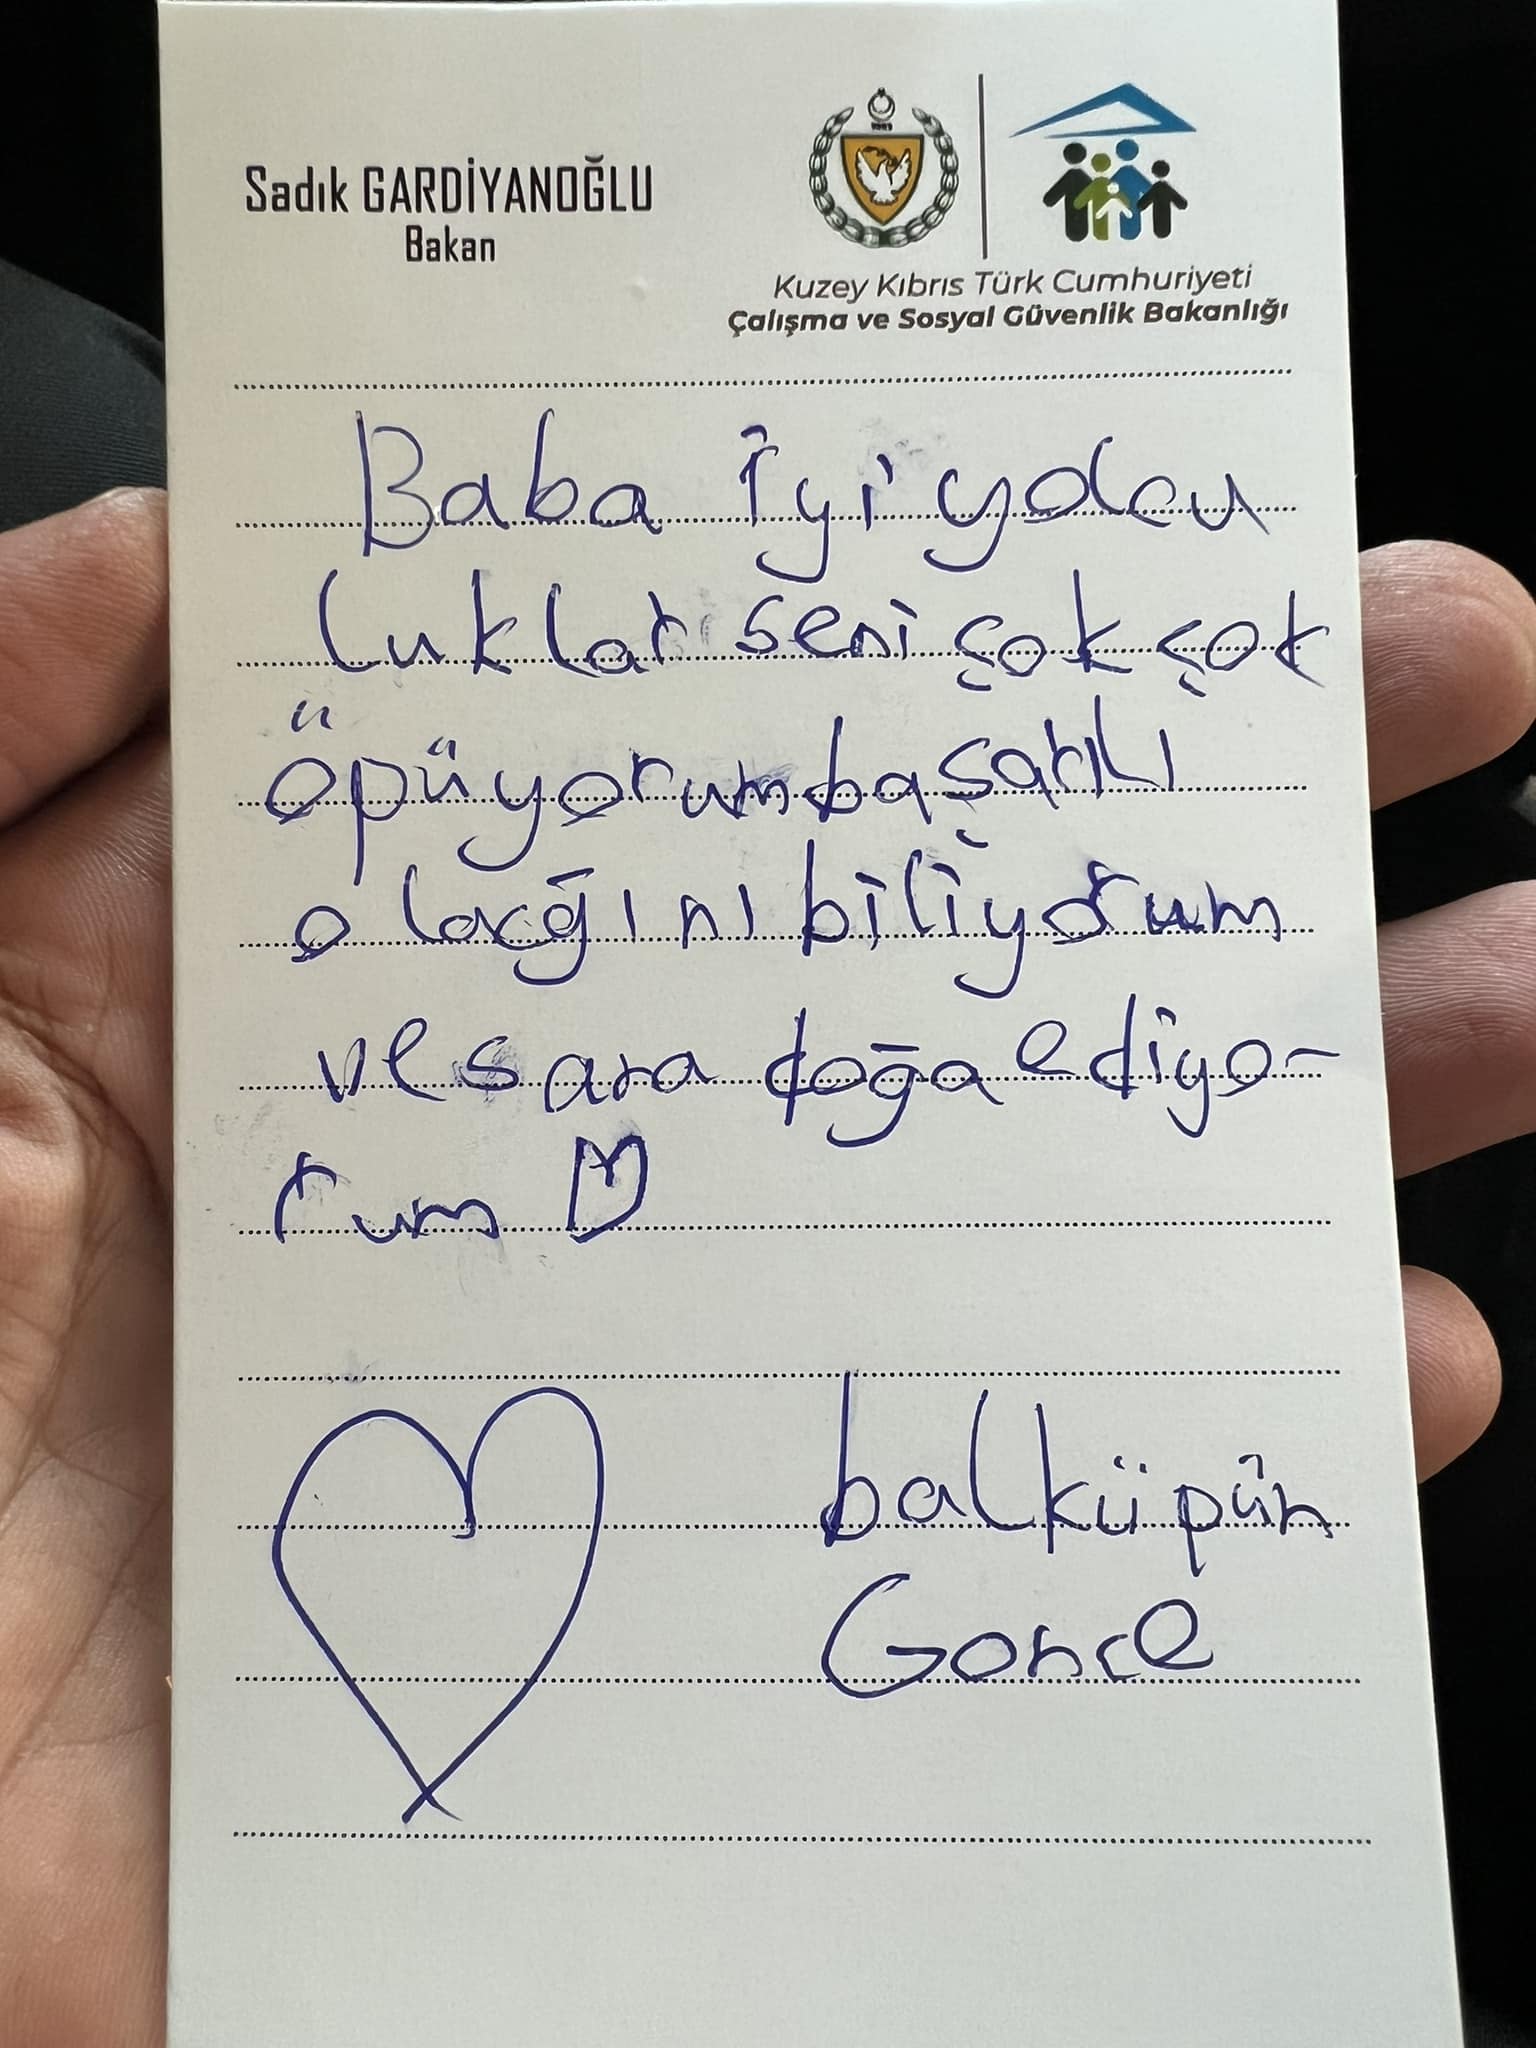 Sadık GARDİYANOĞLU
Bakan
1983
Kuzey Kıbrıs Türk Cumhuriyeti
Çalışma ve Sosyal Güvenlik Bakanlığı
Baba iyi yolcu
luklar seni çok çok
öpüyorum başarılı
olacağını biliyorum
ve sana doğa ediyo-
rum
balküpün
Gonce